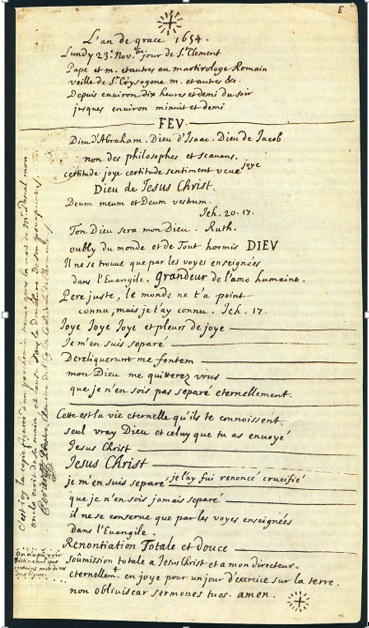 E
L'an de grace 1654.
Lundy 23e. Nov.bre jour de St Clement
Pape et m. et autres au martirologe Romain
veille de St Crysogone m. et autres &c.
Depuis environ dix heures et demi du soir
jusques environ minuit et demi
FEV.
Dieu d'Abraham. Dieu d'Isaac. Dieu de Jacob
non des philosophes et scavans.
certitude joye certitude sentiment veue joye
Dieu de Jesus Christ.
Deum meum et Deum vestrum.
Jeh. 20. 17.
Ton Dieu sera mon Dieu. Ruth.
oubly du monde et de Tout hormis DIEV
Il ne se trouve que par les voyes enseignées
dans l'Euangile. Grandeur de l'ame humaine.
Pere juste, le monde ne t'a point
connu, mais je t'ay connu. Jeh. 17.
Joye Joye Joye et pleurs de joye
Je m'en suis separé
Dereliquerunt me fontem
mon Dieu me quitterez vous
que je n'en sois pas separé eternellement.
Cette est la vie eternelle qu'ils te connoissent
seul vray Dieu et celuy que tu as envoyé
Jesus Christ
Jesus Christ
je m'en suis separé je l'ay fui renoncé crucifié
que je n'en sois jamais separé
il ne se conserve que par les voyes enseignées
dans l'Euangile.
Renontiation Totale et douce
soûmission totale a Jesus Christ et a mon directeur.
eternellemt. en joye pour un jour d'exercice sur la terre.
non obliviscar sermones tuos. amen.